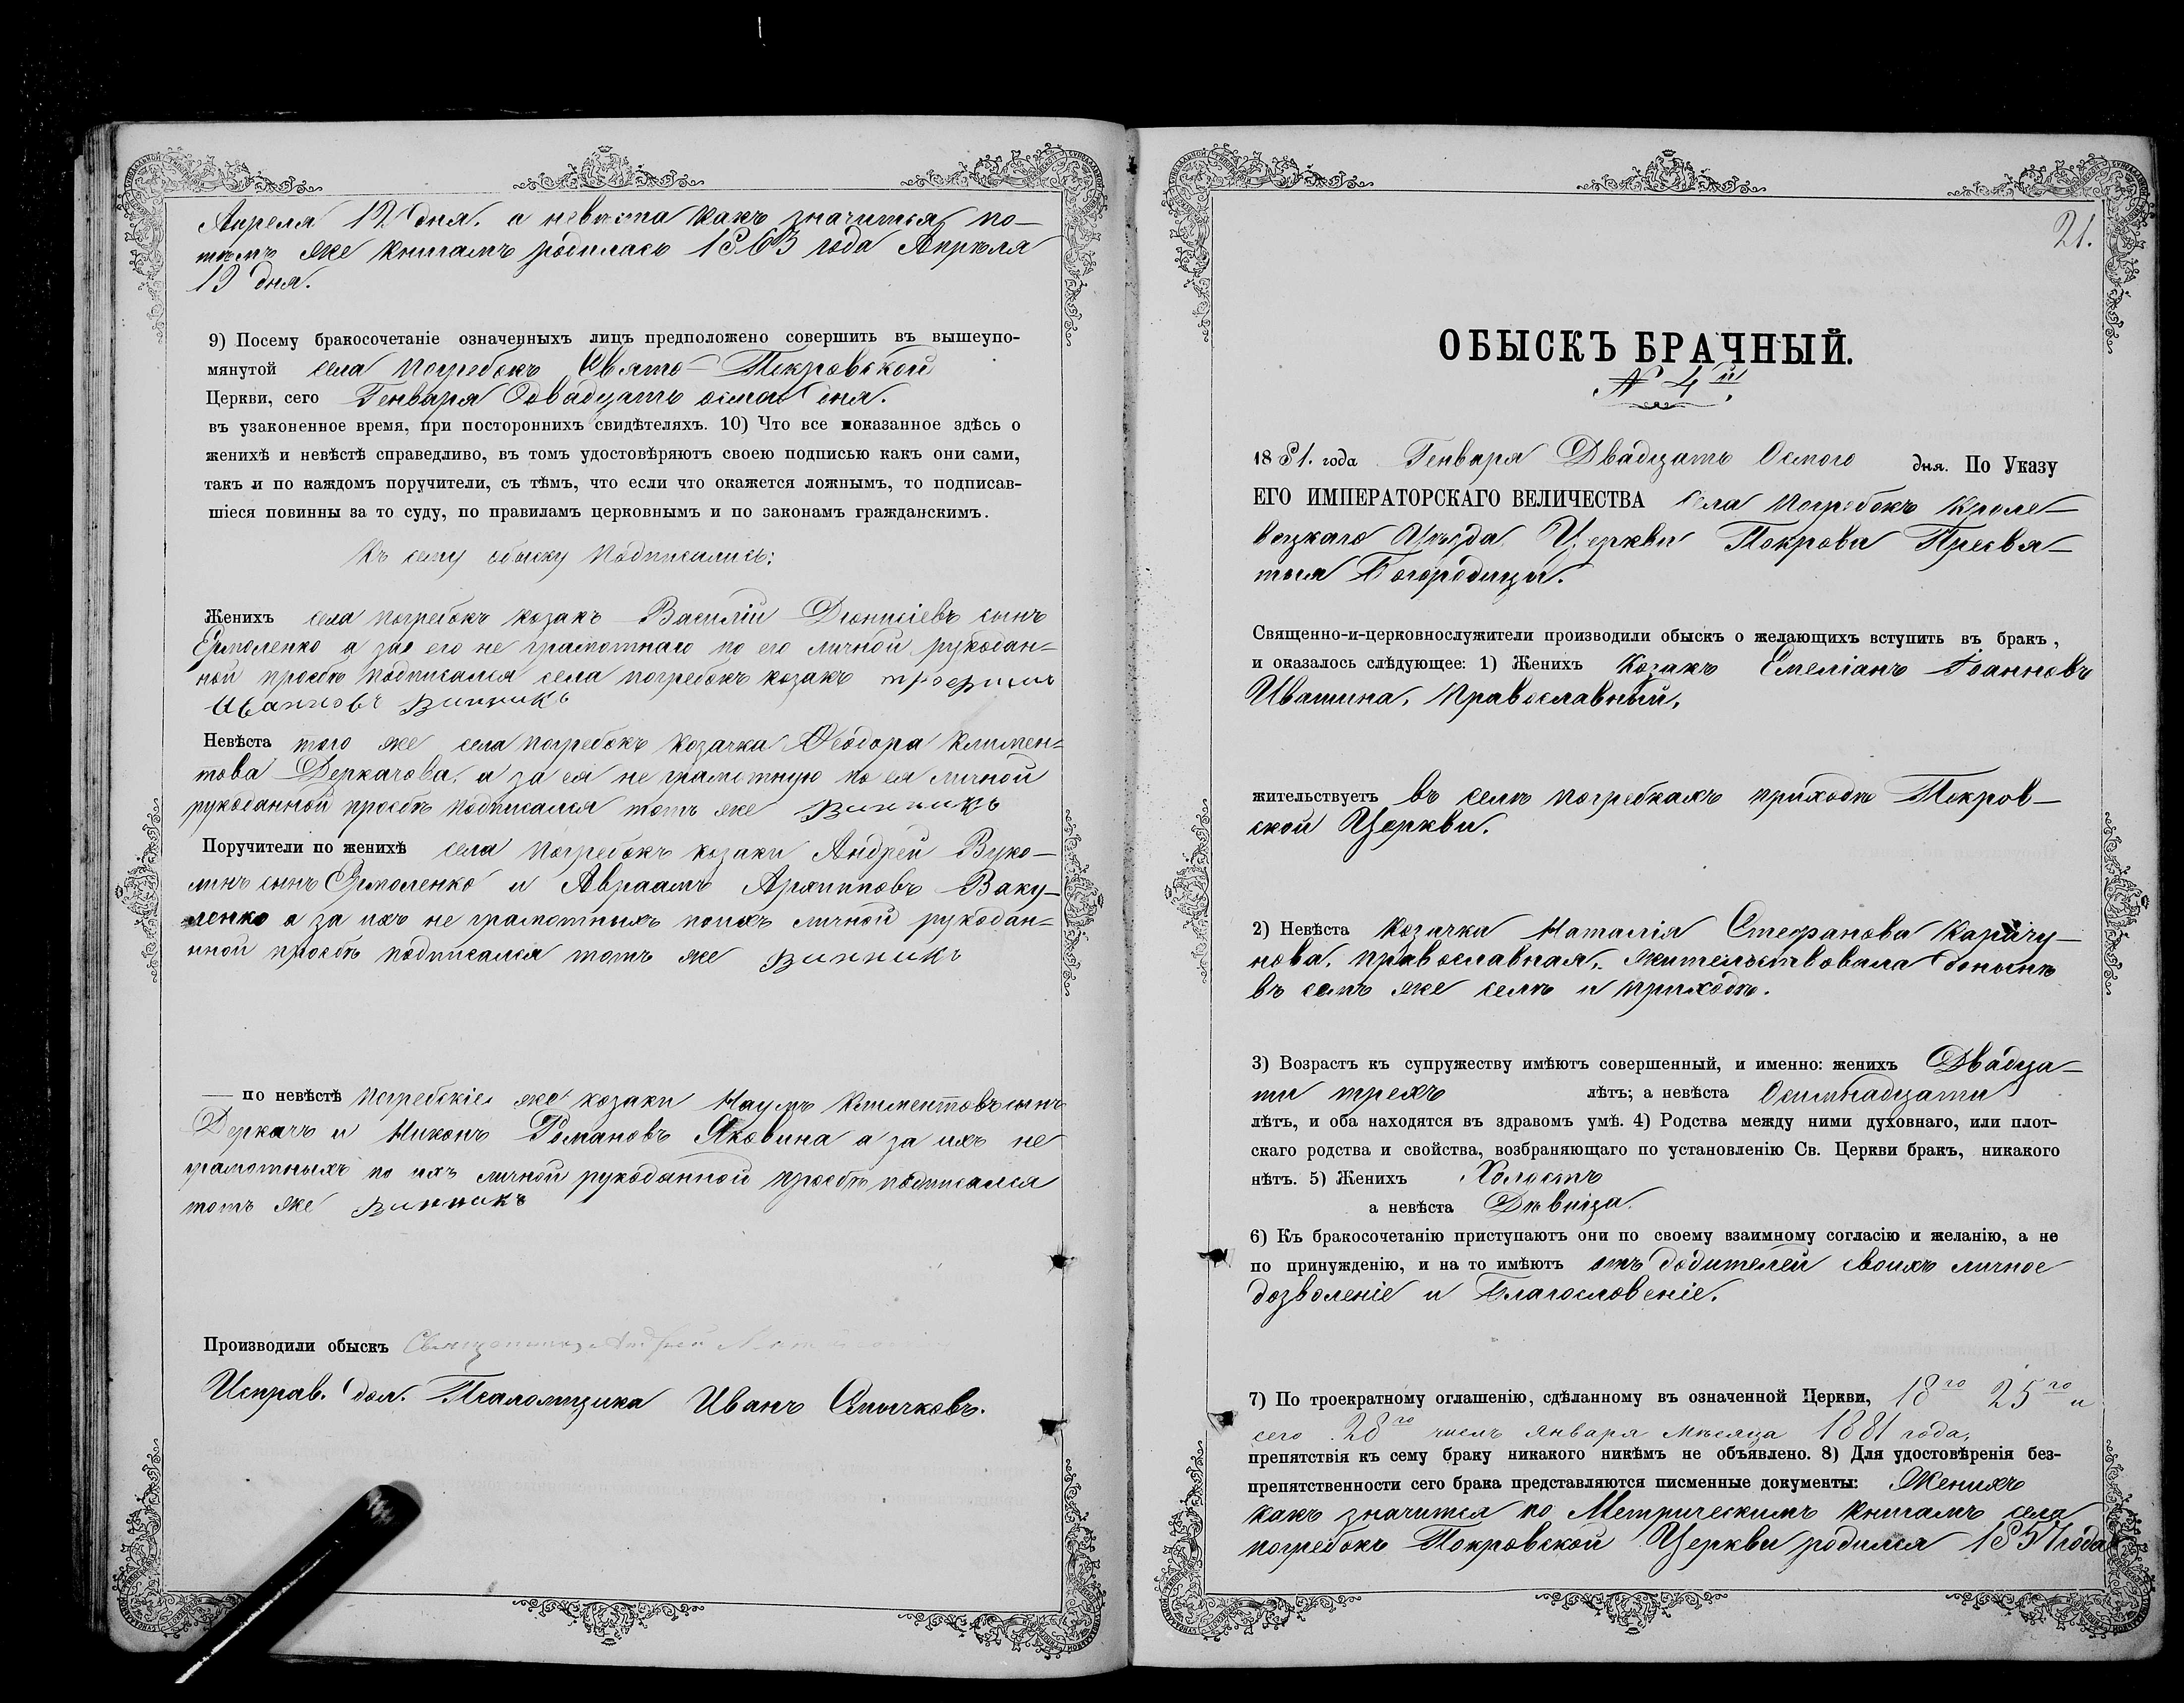 Апреля 12 дня. а невѣста какъ значится по-
тѣмъ же книгамъ родилась 1863 года Апрѣля
13 дня.
9) Посему бракосочетаніе означенныхъ лицъ предположено совершить въ вышеупо-
мянутой села Погребокъ Свято-Покровской
Церкви, сего Генваря двадцать осмаго дня.
въ узаконенное время, при постороннихъ свидѣтеляхъ. 10) Что все показанное здѣсь о
женихѣ и невѣстѣ справедливо, въ томъ удостовѣряютъ своею подписью какъ они сами,
такъ и по каждомъ поручители, съ тѣмъ, что если что окажется ложнымъ, то подписав-
шіеся повинны за то суду, по правиламъ церковнымъ и по законамъ гражданскимъ.
Къ сему обыску подписались:
Женихъ села погребокъ козакъ Василій Діонисіевъ сынъ
Ермоленко а за его не грамотнаго по его личной рукодан-
ной просьбѣ подписался села погребокъ козакъ
Ивановъ Винникъ
Невѣста того же села погребокъ козачка Ѳеодора Климен-
това Деркачова, а за ея не грамотную по ея личной
рукоданной просьбѣ подписался тотъ же Винникъ
Поручители по женихѣ села погребокъ козаки Андрей Вуко-
линъ сынъ Ермоленко и Авраамъ Архиповъ Ваку-
ленко а за ихъ не грамотныхъ по ихъ личной рукодан-
нной просьбѣ подписался тотъ же Винникъ
— по невѣстѣ погребскіе же козаки Наумъ Климентовъ сынъ
Деркачъ и Никонъ Романовъ Яковина а за ихъ не
грамотныхъ по ихъ личной рукоданной просьбѣ подписался
тотъ же Винникъ
Производили обыскъ Священникъ Андрей
Исправ. дол. Псаломщика Иванъ Слычковъ.
21.
ОБЫСКЪ БРАЧНЫЙ.
№ 4й
1881. года Генваря Двадцать Осмого дня. По Указу
ЕГО ИМПЕРАТОРСКАГО ВЕЛИЧЕСТВА села погребокъ Кроле-
вецкаго Уѣзда Церкви Покрова Пресвя-
тыя Богородицы.
Священно-и-церковнослужители производили обыскъ о желающихъ вступить въ бракъ,
и оказалось слѣдующее: 1) Женихъ Козакъ Емеліанъ Іоанновъ
Ивашина, православный,
жительствуетъ въ селѣ погребкахъ приходѣ Покров-
ской Церкви.
2) Невѣста козачка Наталія Стефанова Карачу-
нова, православная, жительствовала донынѣ
въ семъ же селѣ и приходѣ.
3) Возрастъ къ супружеству имѣютъ совершенный, и именно: женихъ Двадца-
ти трехъ лѣтъ; а невѣста Осимнадцати
лѣтъ, и оба находятся въ здравомъ умѣ. 4) Родства между ними духовнаго, или плот-
скаго родства и свойства, возбраняющаго по установленію Св. Церкви бракъ, никакого
нѣтъ. 5) Женихъ Холостъ
а невѣста Дѣвица.
6) Къ бракосочетанію приступаютъ они по своему взаимному согласію и желанію, а не
по принужденію, и на то имѣютъ отъ родителей своихъ личное
дозволеніе и Благословеніе.
7) По троекратному оглашенію, сдѣланному въ означенной Церкви, 18го 25го и
сего 28го числъ января мѣсяца 1881 года,
препятствія къ сему браку никакого никѣмъ не объявлено. 8) Для удостовѣренія без-
препятственности сего брака представляются писменные документы: Женихъ
какъ значится по Метрическимъ книгамъ села
погребокъ Покровской Церкви родился 1857 года